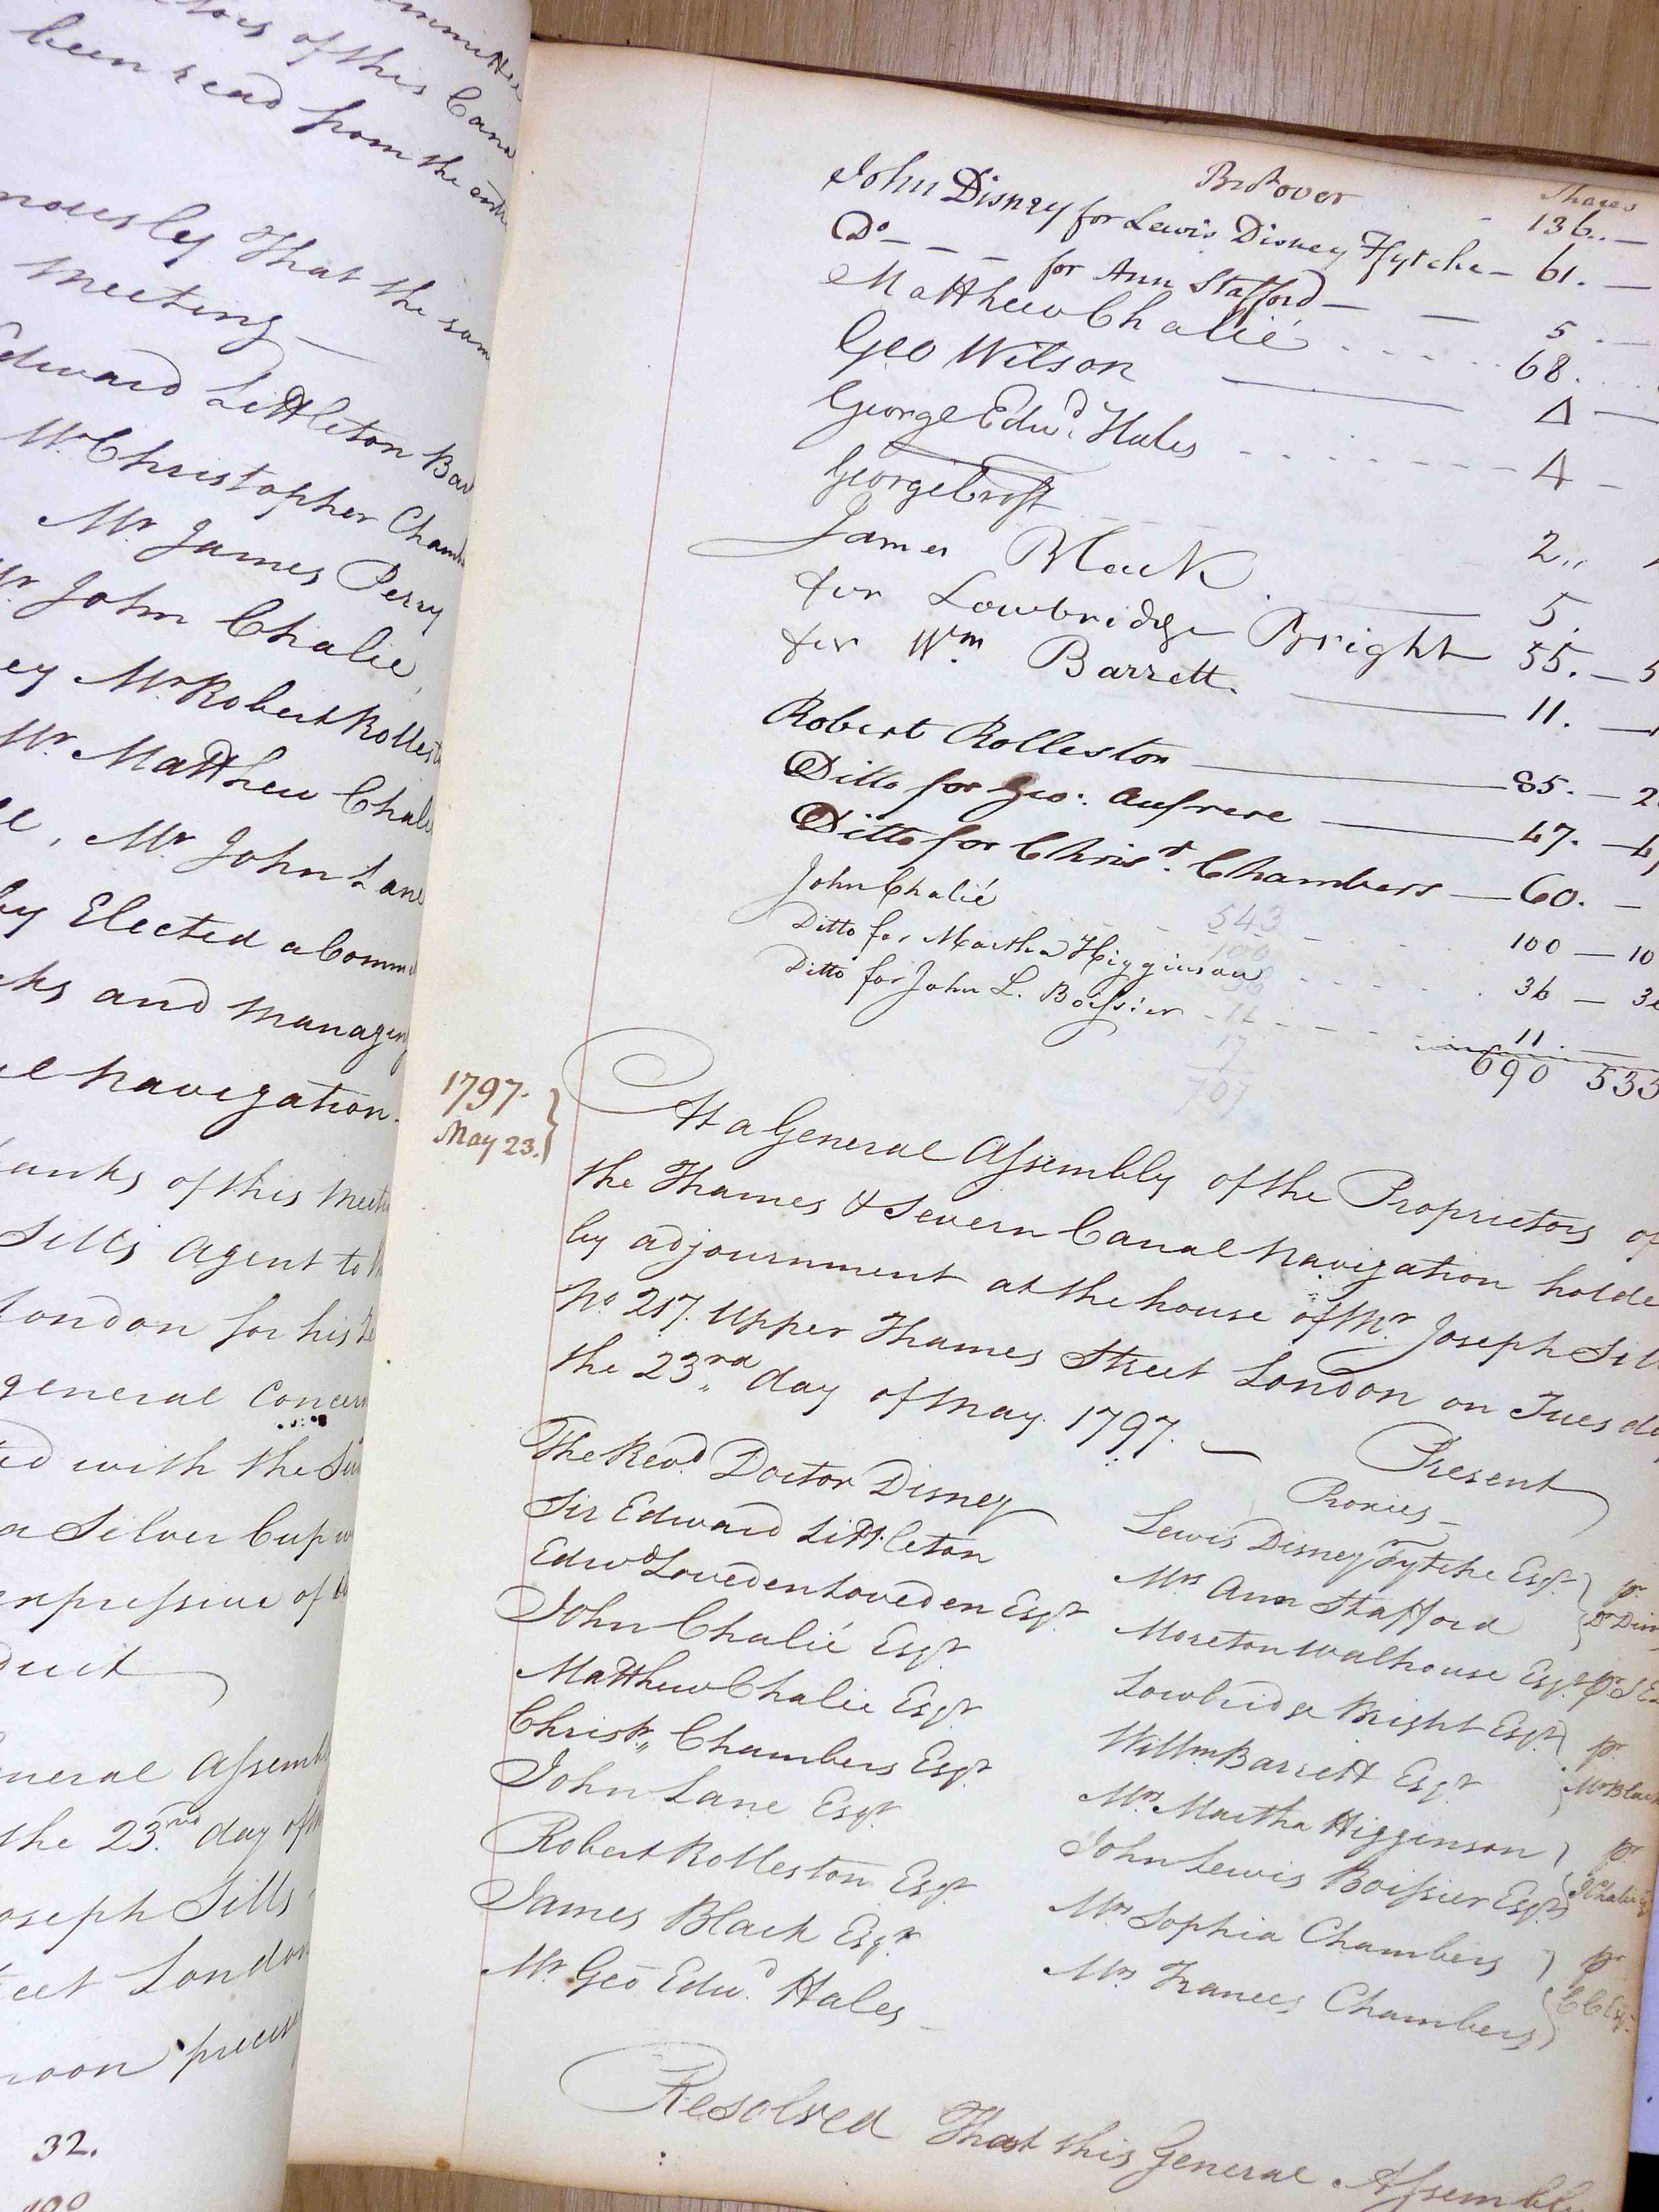 of this Cana
been read from the
That the same
Meeting
Edward Littleton Bar
Mr. Christopher Chamb
Mr. James Perry
Mr. John Chalie,
ey Mr. Robert Rollest
Mr. Matthew Chali
Mr. John Lane
by Elected a Comm
ks and Managem
al Navigation.
anks of this Meeti
Sills Agent to
London for his
general Concern
ed with the Su
a Silver Cup
expressive of
duct
neral Assembl
the 23rd day of
oseph Sills
eet London
noon precise
32.
Brot over Shares
136 .. —
John Disney for Lewis Disney Ffytche — 61. —
Do — — for Ann Stafford — — 5. —
Matthew Chalié 68.
Geo Wilson 4 —
George Edwd. Hales 4 —
George Croft 2 ,,
James Black 5.
for Lowbridge Bright 55. — 5
for Wm. Barrett. 11. —
Robert Rolleston 85. — 2
Ditto for Geo: Aufrere 47. — 4
Ditto for Christr. Chambers — 60. —
John Chalié 100 — 10
543
Ditto for Martha Higginson 36 — 3
100
Ditto for John L. Boissier 11 —
690 533
17
707
1797.
May 23.
At a General Assembly of the Proprietors of
the Thames & Severn Canal Navigation holde
by adjournment at the house of Mr. Joseph Sil
No. 217. Upper Thames Street London on Tuesda
the 23rd day of May 1797. —
Present
The Revd. Doctor Disney
Sir Edward Littleton
Edwd Loveden Loveden Esqr
John Chalié Esqr
Matthew Chalie Esqr
Christr,, Chambers Esqr
John Lane Esqr.
Robert Rolleston Esqr
James Black Esqr
Mr. Geo Edwd. Hales
Proxies —
Lewis Disney Fytche Esqr. } pr
Mrs Ann Stafford } Dr Disn
Moreton Walhouse Esqr pr S E
Lowbridge Bright Esqr } pr
Willm Barrett Esqr } Mr Black
Mrs. Martha Higginson } pr
John Lewis Boissier Esqr } J Chalie
Mrs Sophia Chambers } pr
Mrs Frances Chambers } C C Esqr.
Resolved That this General Assembly